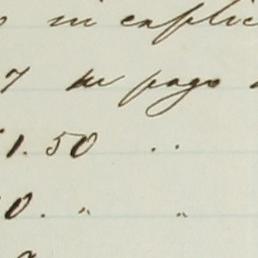 in esplic
7 su pago
1.50 " "
0. " "